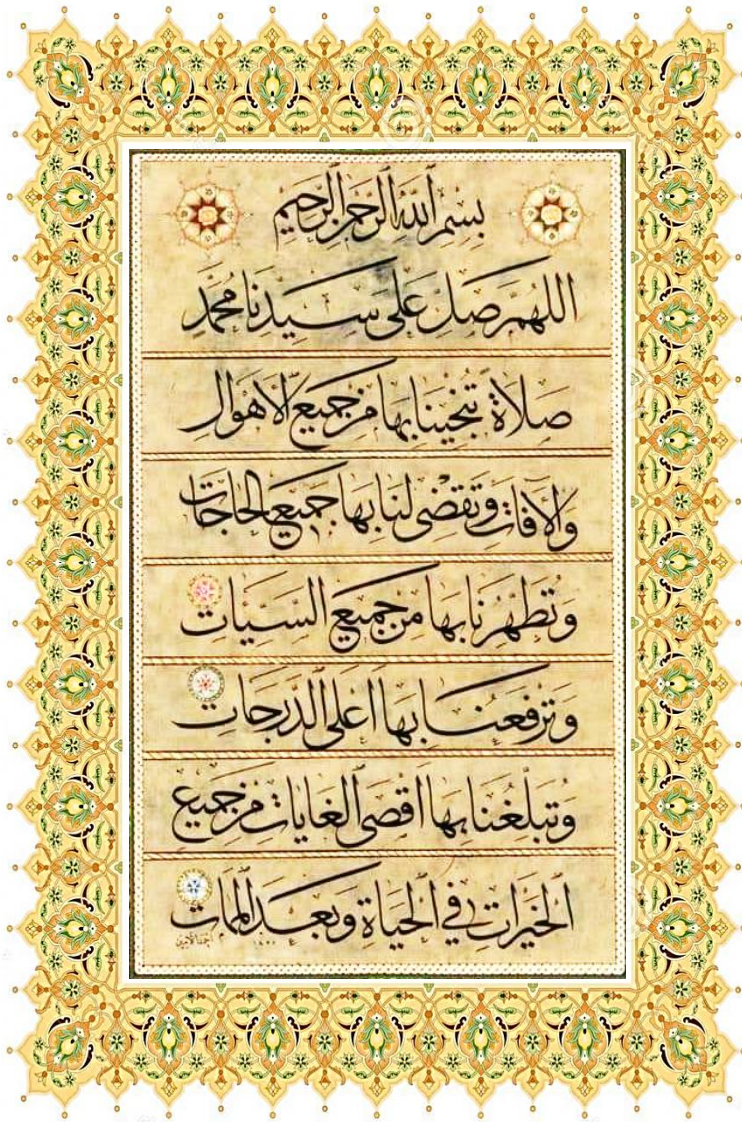 بسم الله الرحمن الرحيم
اللهم صل على سيدنا محمد
صلاة تنجينا بها من جميع الاهوال
والآفات وتقضى لنا بها جميع الحاجات
وتطهرنا بها من جميع السيات
وترفعنا بها اعلى الدرجات
وتبلغنا بها اقصى الغايات من جميع
الخيرات في الحياة وبعد الممات